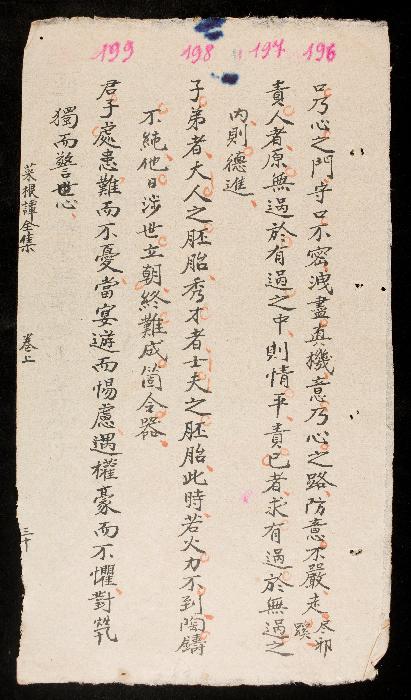 196
口乃心之門守口不密洩盡真機意乃心之路防意不嚴走尽邪蹊
197
責人者原無過於有過之中則情平責己者求有過於無過之
內則德進
198
子弟者大人之胚胎秀才者士夫之胚胎此時若火力不到陶鑄
不純他日涉世立朝終難成箇令器
199
君子處患難而不憂當宴遊而惕慮遇權豪而不懼對煢
獨而驚心
菜根譚全集
卷上
三十